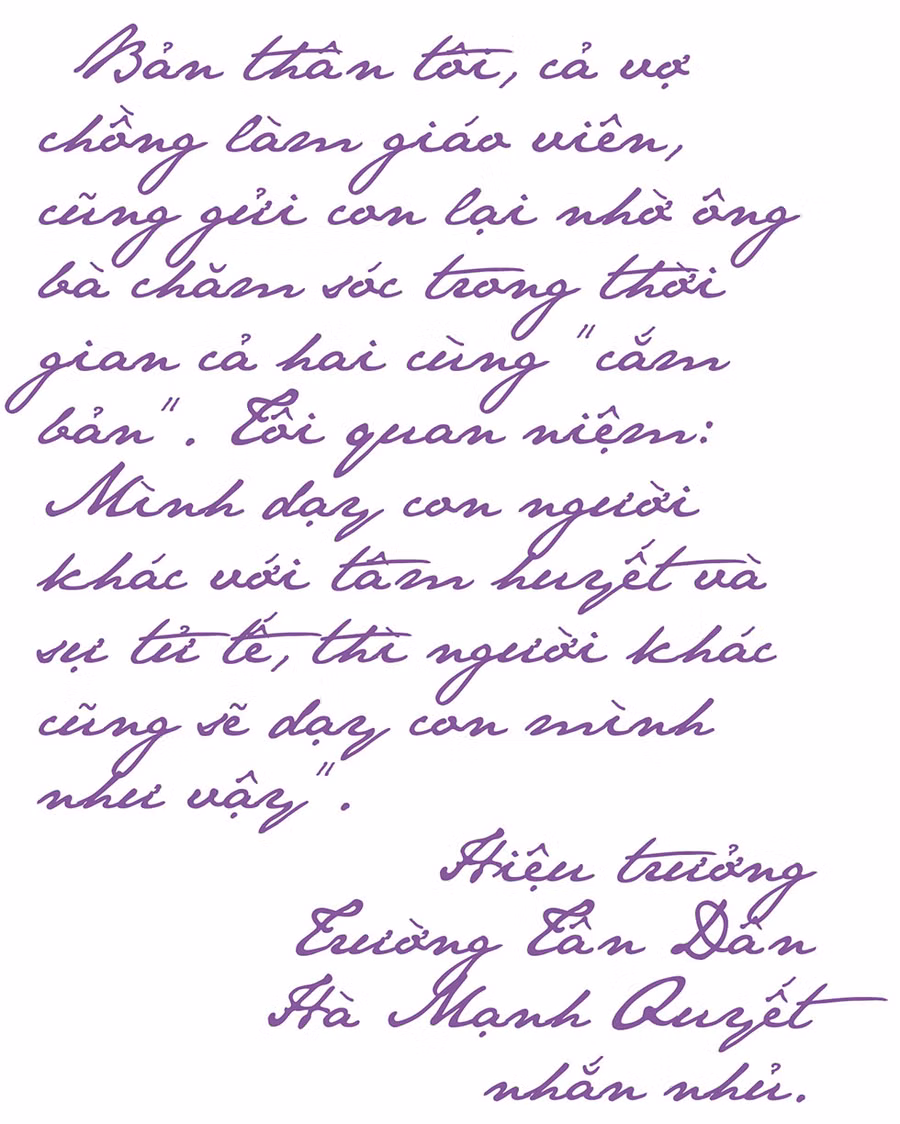 Bản thân tôi, cả vợ
chồng làm giáo viên,
cũng gửi con lại nhờ ông
bà chăm sóc trong thời
gian cả hai cùng "cắm
bản". Tôi quan niệm:
Mình dạy con người
khác với tâm huyết và
sự tử tế, thì người khác
cũng sẽ dạy con mình
như vậy".
Hiệu trưởng
Trường Tân Dân
Hà Mạnh Quyết
nhắn nhủ.